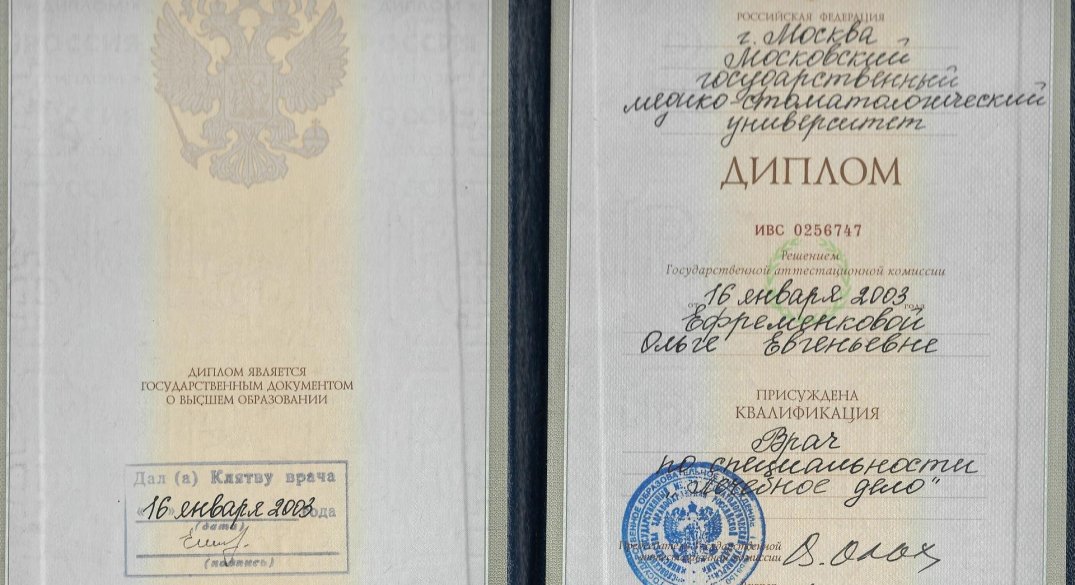 ДИПЛОМ ЯВЛЯЕТСЯ
ГОСУДАРСТВЕННЫМ ДОКУМЕНТОМ
О ВЫСШЕМ ОБРАЗОВАНИИ
Дал (а) Клятву врача
16 января 2003 года
(дата)
(подпись)
РОССИЙСКАЯ ФЕДЕРАЦИЯ
г. Москва
Московский
государственный
медико-стоматологический
университет
ДИПЛОМ
ИВС 0256747
Решением
Государственной аттестационной комиссии
от 16 января 2003 года
Ефременковой
Ольге Евгеньевне
ПРИСУЖДЕНА
КВАЛИФИКАЦИЯ
Врач
по специальности
"Лечебное дело"
Председатель Государственной
аттестационной комиссии